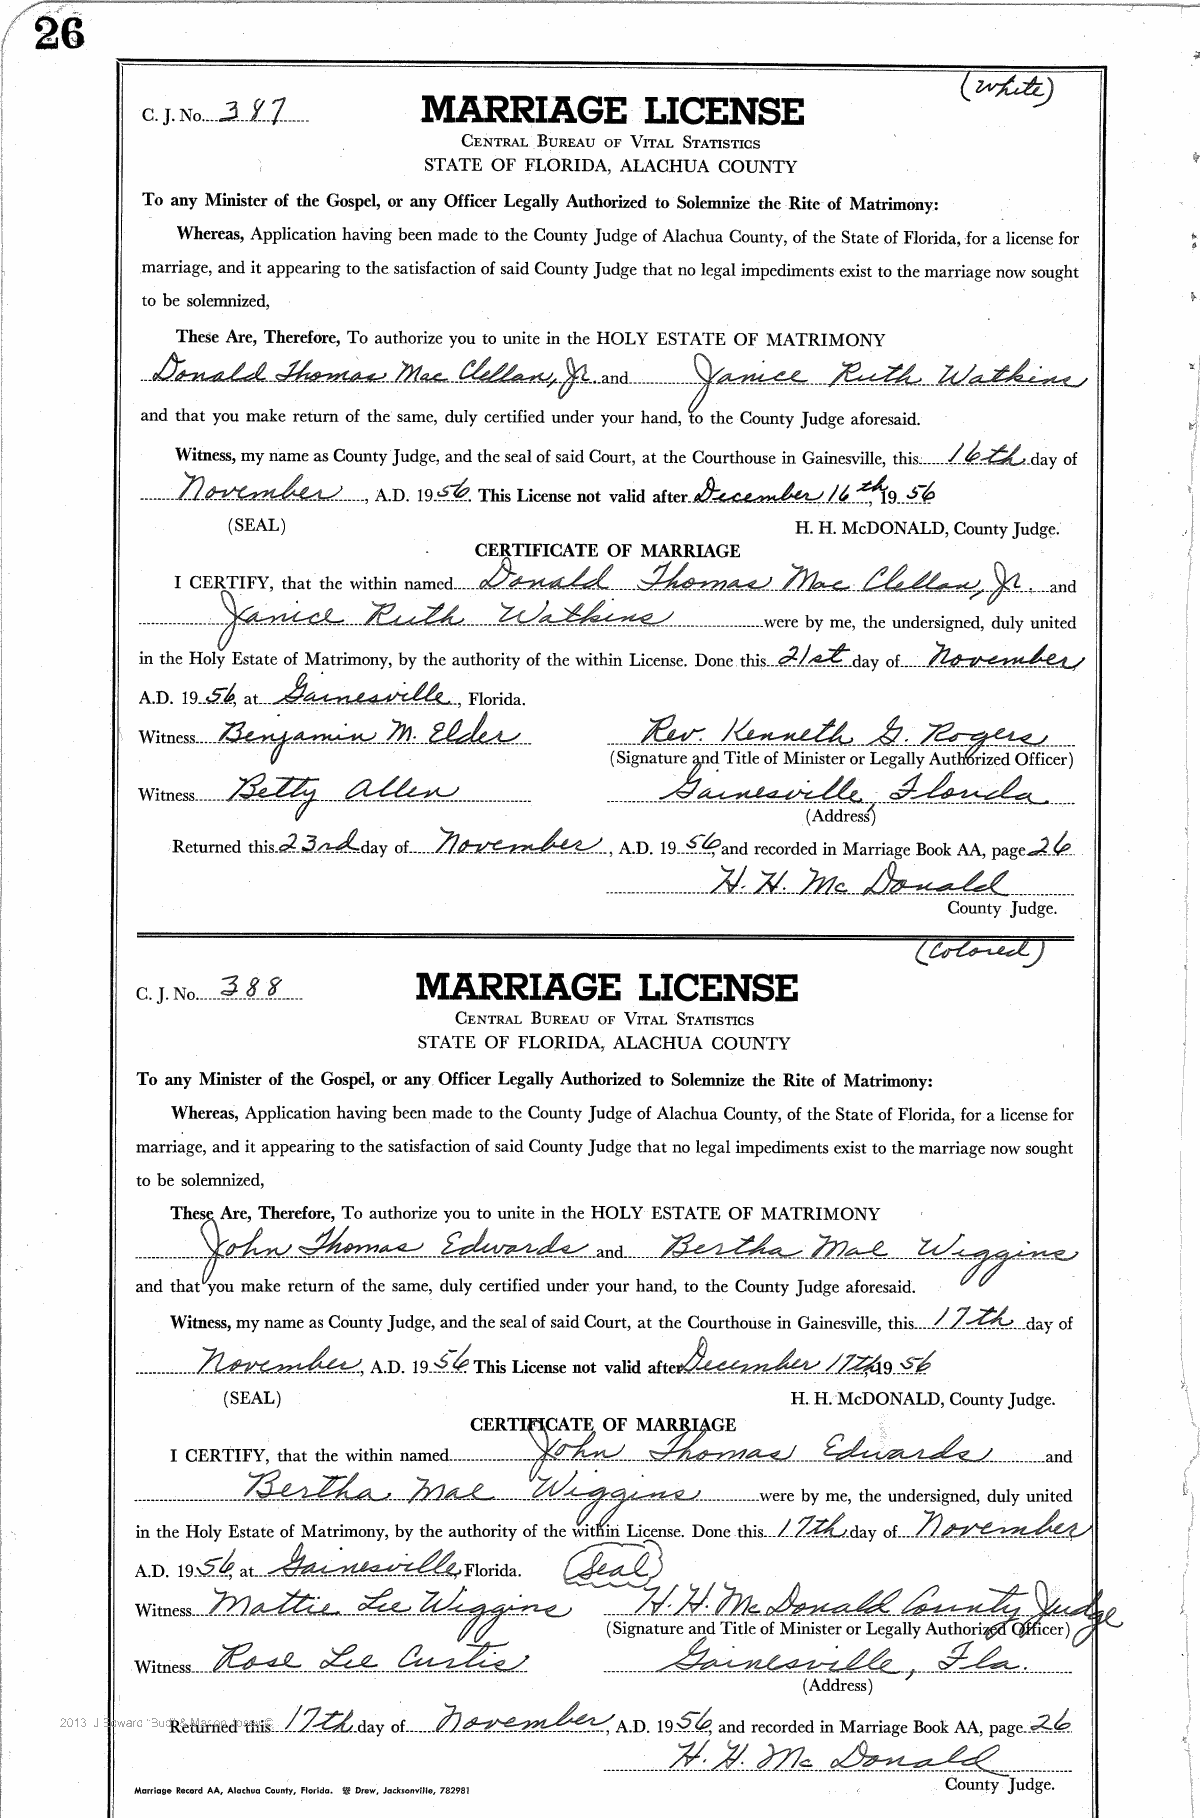 26
(White)
C. J. No. 387 MARRIAGE LICENSE
CENTRAL BUREAU OF VITAL STATISTICS
STATE OF FLORIDA, ALACHUA COUNTY
To any Minister of the Gospel, or any Officer Legally Authorized to Solemnize the Rite of Matrimony:
Whereas, Application having been made to the County Judge of Alachua County, of the State of Florida, for a license for
marriage, and it appearing to the satisfaction of said County Judge that no legal impediments exist to the marriage now sought
to be solemnized,
These Are, Therefore, To authorize you to unite in the HOLY ESTATE OF MATRIMONY
Donald Thomas Mac Clellan, Jr. and Janice Ruth Watkins
and that you make return of the same, duly certified under your hand, to the County Judge aforesaid.
Witness, my name as County Judge, and the seal of said Court, at the Courthouse in Gainesville, this 16th day of
November, A.D. 1956. This License not valid after December 16th, 1956
(SEAL) H. H. McDONALD, County Judge.
CERTIFICATE OF MARRIAGE
I CERTIFY, that the within named Donald Thomas Mac Clellan, Jr. and
Janice Ruth Watkins were by me, the undersigned, duly united
in the Holy Estate of Matrimony, by the authority of the within License. Done this 21st day of November,
A.D. 1956, at Gainesville, Florida.
Witness Benjamin M. Elder Rev. Kenneth G. Rogers
(Signature and Title of Minister or Legally Authorized Officer)
Witness Betty Allen Gainesville, Florida
(Address)
Returned this 23rd day of November, A.D. 1956, and recorded in Marriage Book AA, page 26
H. H. Mc Donald
County Judge.
(Colored)
C. J. No. 388 MARRIAGE LICENSE
CENTRAL BUREAU OF VITAL STATISTICS
STATE OF FLORIDA, ALACHUA COUNTY
To any Minister of the Gospel, or any Officer Legally Authorized to Solemnize the Rite of Matrimony:
Whereas, Application having been made to the County Judge of Alachua County, of the State of Florida, for a license for
marriage, and it appearing to the satisfaction of said County Judge that no legal impediments exist to the marriage now sought
to be solemnized,
These Are, Therefore, To authorize you to unite in the HOLY ESTATE OF MATRIMONY
John Thomas Edwards and Bertha Mae Wiggins
and that you make return of the same, duly certified under your hand, to the County Judge aforesaid.
Witness, my name as County Judge, and the seal of said Court, at the Courthouse in Gainesville, this 17th day of
November, A.D. 1956. This License not valid after December 17th, 1956
(SEAL) H. H. McDONALD, County Judge.
CERTIFICATE OF MARRIAGE
I CERTIFY, that the within named John Thomas Edwards and
Bertha Mae Wiggins were by me, the undersigned, duly united
in the Holy Estate of Matrimony, by the authority of the within License. Done this 17th day of November,
A.D. 1956, at Gainesville, Florida. (Seal)
Witness Mattie Lee Wiggins H. H. Mc Donald County Judge
(Signature and Title of Minister or Legally Authorized Officer)
Witness Rose Lee Curtis Gainesville, Fla.
(Address)
2013 J Edward "Bud" &
Returned this 17th day of November, A.D. 1956, and recorded in Marriage Book AA, page 26
H. H. Mc Donald
County Judge.
Marriage Record AA, Alachua County, Florida. Drew, Jacksonville, 782981